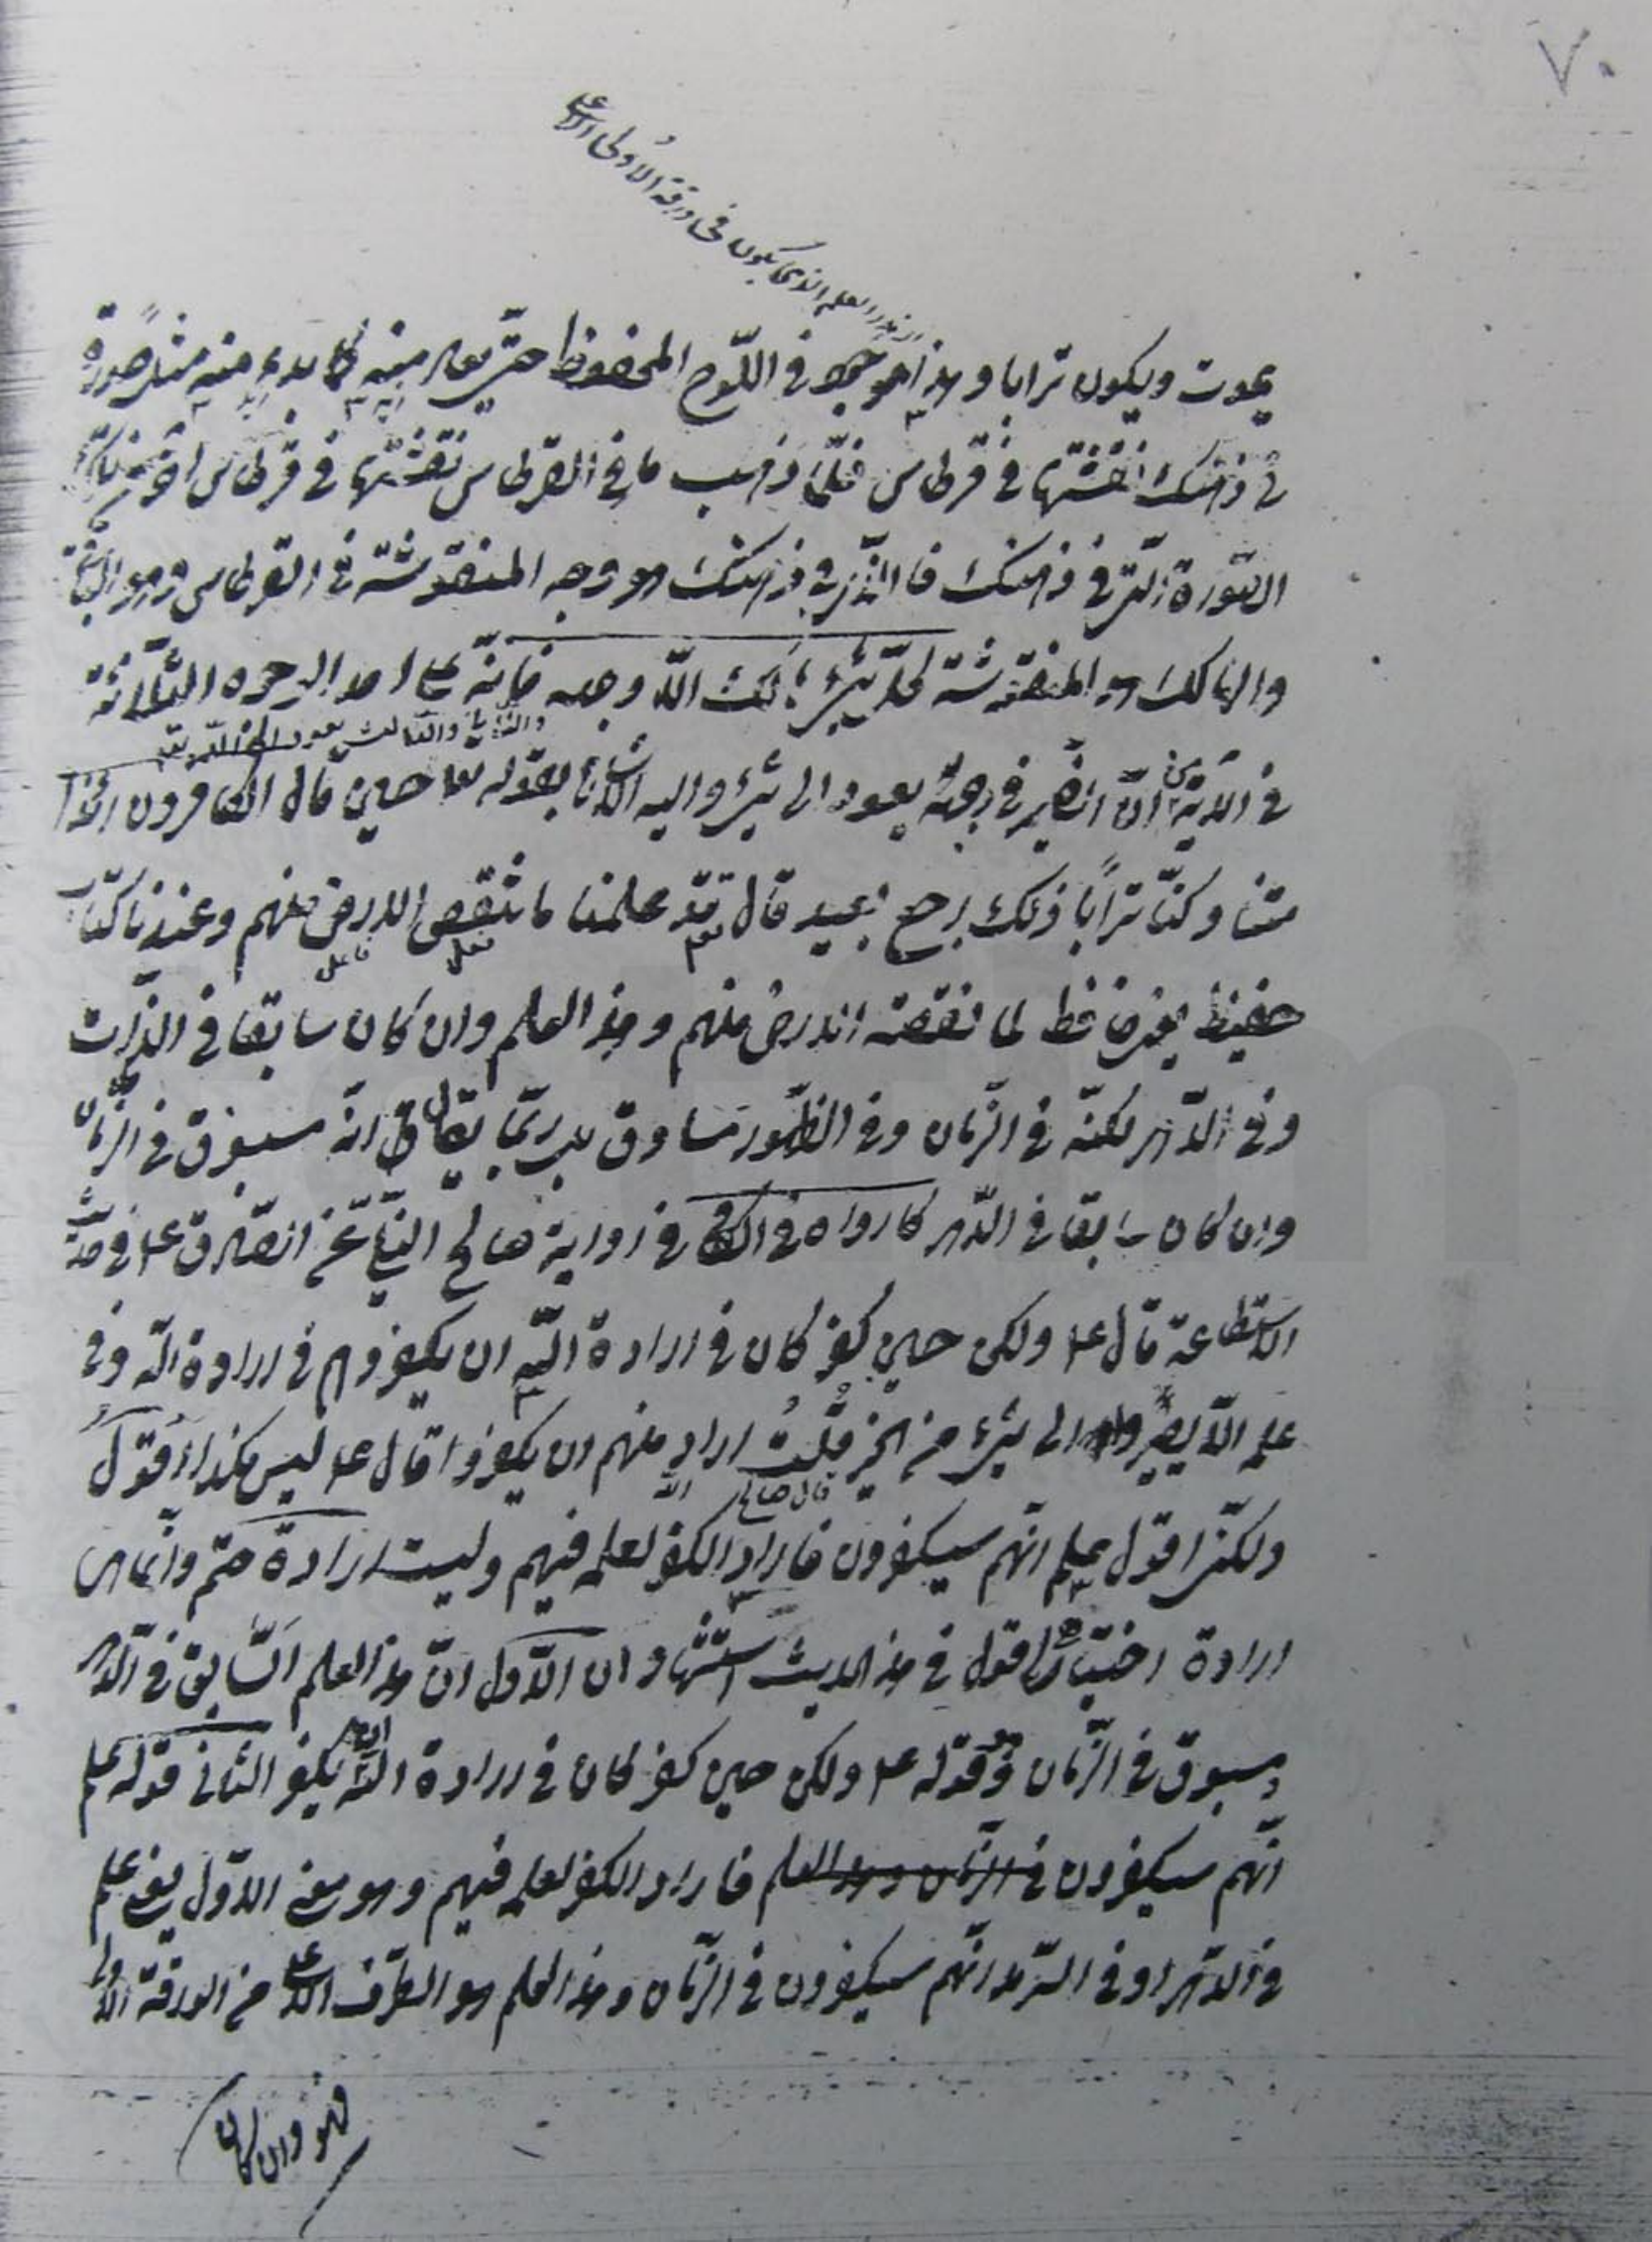 ٧٠
العلم الذي يكون في ورقة الأولى الأعلى
يموت ويكون ترابا وهذا هو وجهه في اللّوح المحفوظ حتّى يعاد منه كما بدء منه مثلاً صورة
في ذهنك نقشتها في قرطاس فلمّا ذهب ما في القرطاس نقشتها في قرطاس آخر
الصّورة الّتي في ذهنك فالّذي في ذهنك هو وجه المنقوشة في القرطاس وهو الباقي
والهالك هو المنقوشة كلّ شيء هالك الّا وجهه فإنّه على احد الوجوه الثّلاثة
والثّاني والثالث يعود الى اللّه تعالى
في الآية من انّ الضّمير في وجهه يعود الى شيء واليه الاشارة بقوله تعالى حين قال الكافرون ائذا
متنا وكنّا ترابًا ذلك رجع بعيد قال تعالى قد علمنا ما تنقص الارض منهم وعندنا كتاب
فعل فاعل
حفيظ يعني حافظ لما تنقصه الارض منهم وهذا العلم وان كان سابقا في الذّات
وفي الدّهر لكنّه في الزّمان وفي الظّهور مساوق بل ربّما يقال انّه مسبوق في الزّمان
وان كان سابقا في الدّهر كما رواه في الكافي في رواية صالح النيلي عن الصّادق ع في حديث
الاستطاعة قال ع ولكن حين كفر كان في ارادة اللّه ان يكفر وهم في ارادة اللّه وفي
علمه الّا يصيروا الى شيء من الخير قلتُ اراد منهم ان يكفروا قال ع ليس هكذا أقول
قال صالح اللّه
ولكنّي اقول علم انّهم سيكفرون فاراد الكفر لعلمه فيهم وليست ارادة حتم وانّما هي
ارادة اختيار اقول في هذا الحديث استشهادان الاوّل انّ هذا العلم السّابق في الدّهر
مسبوق في الزّمان وهو قوله ع ولكن حين كفر كان في ارادة اللّه ان يكفر الثّاني قوله علم
انّهم سيكفرون في الزّمان وهذا العلم فاراد الكفر لعلمه فيهم وهو معنى الاوّل يعني علم
في الدّهر او في السّرمد انّهم سيكفرون في الزّمان وهذا العلم هو الطّرف الاعلى من الورقة الاولى
فهو وان كان